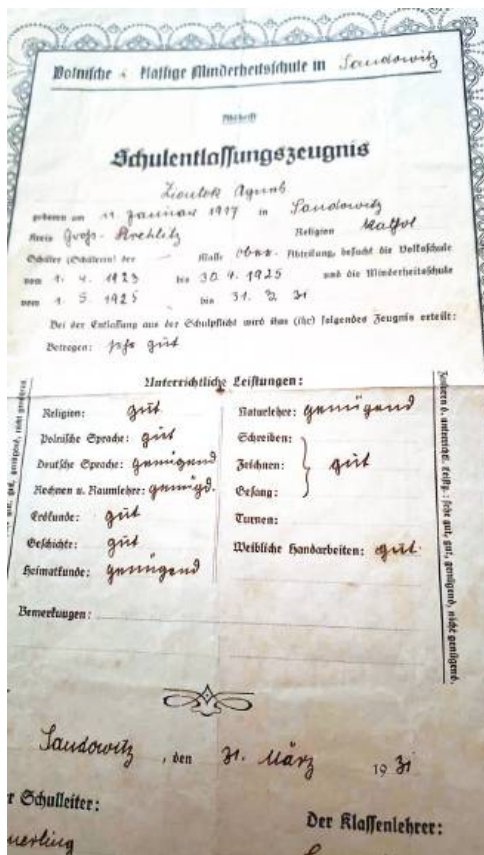 Polnische 4 klassige Minderheitsschule in Sandowitz
Abschrift
Schulentlassungszeugnis
Zientek Agnes
geboren am 11. Januar 1917 in Sandowitz
Kreis Gross-Strehlitz Religion kathol
Schüler (Schülerin) der Klasse ober- Abteilung, besucht die Volksschule
vom 1. 4. 1923 bis 30. 4. 1925 und die Minderheitsschule
vom 1. 5. 1925 bis 31. 3. 31
Bei der Entlassung aus der Schulpflicht wird ihm (ihr) folgendes Zeugnis erteilt:
Betragen: sehr gut
Unterrichtliche Leistungen:
Religion: gut
Polnische Sprache: gut
Deutsche Sprache: genügend
Rechnen u. Raumlehre: genügd.
Erdkunde: gut
Geschichte: gut
Heimatkunde: genügend
Naturlehre: genügend
Schreiben:
Zeichnen: gut
Gesang:
Turnen:
Weibliche Handarbeiten: gut.
Bemerkungen:
gut, genügend, nicht genügend
Zensuren d. unterrichtl. Leistg.: sehr gut, gut, genügend, nicht genügend.
Sandowitz, den 31. März 1931
r Schulleiter:
Der Klassenlehrer: